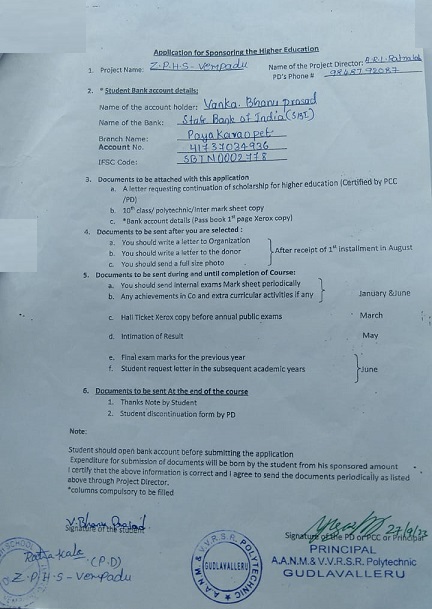 Application for Sponsoring the Higher Education
1. Project Name: Z.P.H.S- Vempadu Name of the Project Director:
PD's Phone #
2. * Student Bank account details:
Name of the account holder: Vanka. Bhanu prasad
Name of the Bank: State Bank of India (SBI)
Branch Name: Payakaraopet
Account No. 41737034936
IFSC Code: SBIN0002778
3. Documents to be attached with this application
a. A letter requesting continuation of scholarship for higher education (Certified by PCC
/PD)
b. 10th class/ polytechnic/inter mark sheet copy
c. *Bank account details (Pass book 1st page Xerox copy)
4. Documents to be sent after you are selected :
a. You should write a letter to Organization
b. You should write a letter to the donor After receipt of 1st installment in August
c. You should send a full size photo
5. Documents to be sent during and until completion of Course:
a. You should send internal exams Mark sheet periodically
b. Any achievements in Co and extra curricular activities if any January &June
c. Hall Ticket Xerox copy before annual public exams March
d. Intimation of Result May
e. Final exam marks for the previous year
f. Student request letter in the subsequent academic years June
6. Documents to be sent At the end of the course
1. Thanks Note by Student
2. Student discontinuation form by PD
Note:
Student should open bank account before submitting the application
Expenditure for submission of documents will be born by the student from his sponsored amount
I certify that the above information is correct and I agree to send the documents periodically as listed
above through Project Director.
*columns compulsory to be filled
V. Bhanu Prasad
Signature of the student
27/9/23
Signature of the PD or PCC or Principal
PRINCIPAL
A.A.N.M.& V.V.R.S.R. Polytechnic
GUDLAVALLERU
A.A.N.M & V.V.R.S.R. POLYTECHNIC
GUDLAVALLERU
Ratna kala (P.D)
Z.P.H.S- Vempadu